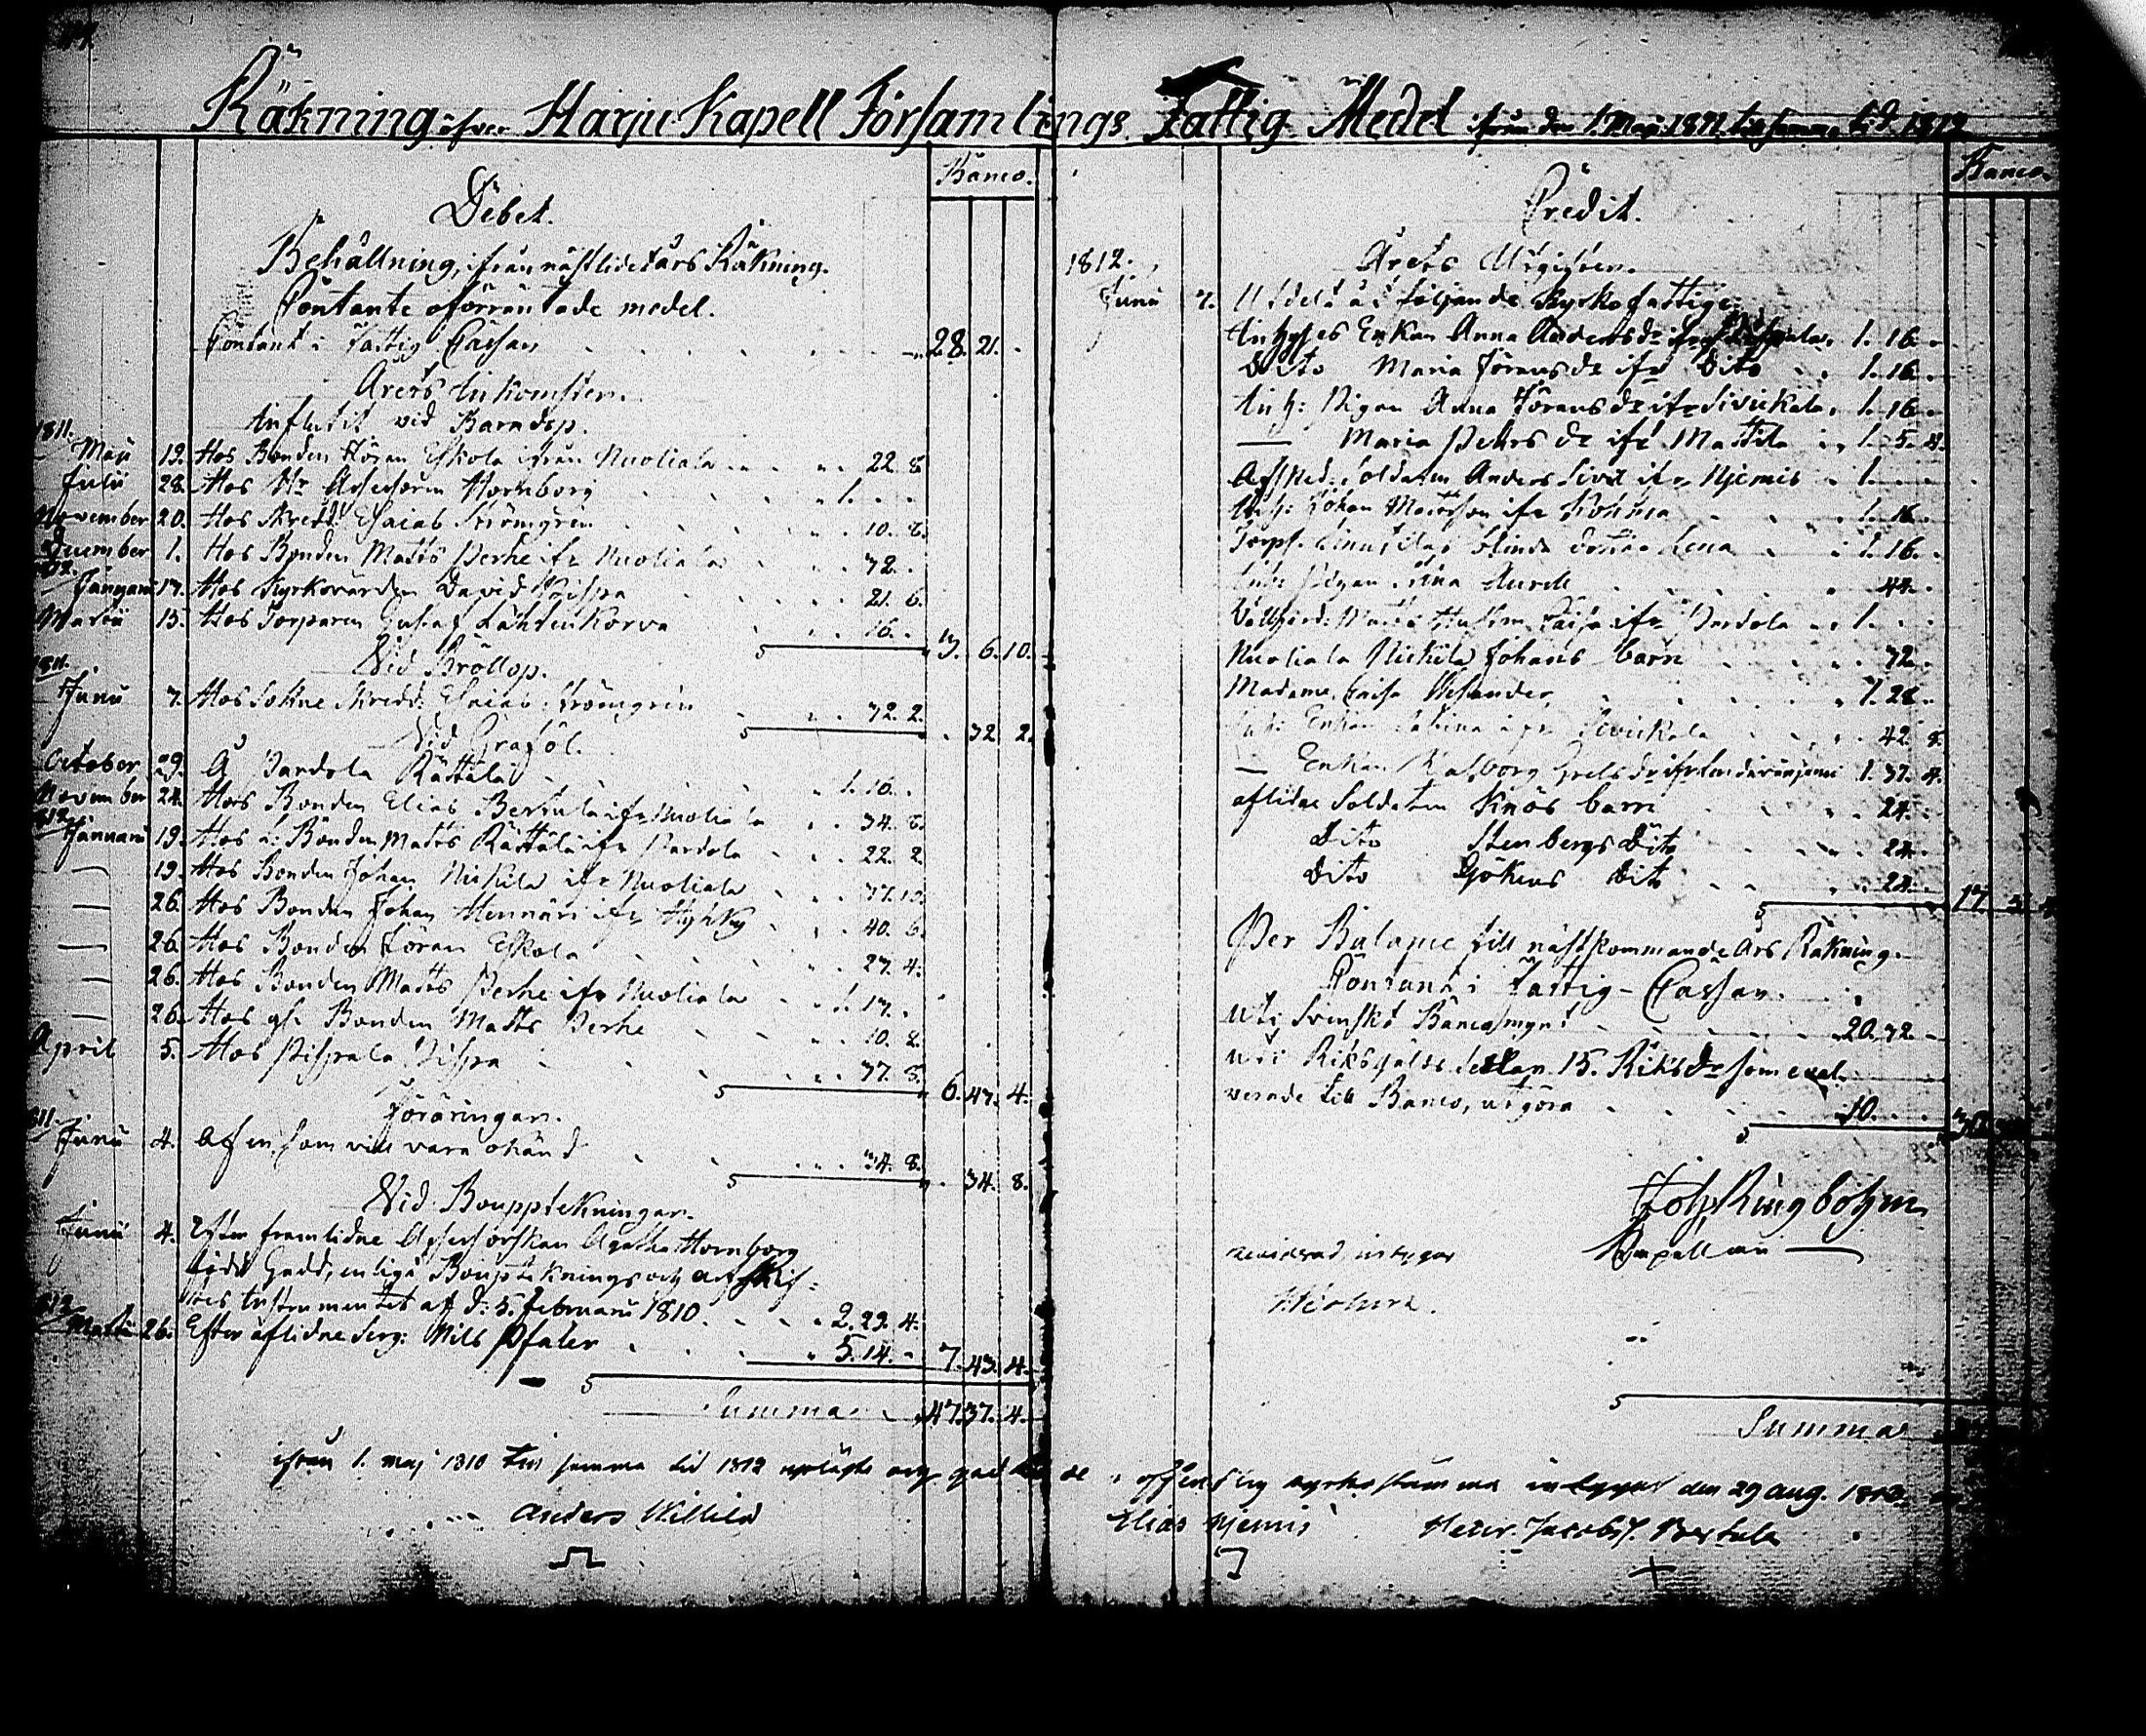 Räkning öfver Harju Kapell Församlings Fattig Medel ifrån den 1. Maji 1811 till samma tid 1812
Banco.
Debet.
Behållning, ifrån nästlidet års Räkning.
Contante oförräntade medel.
Contant i Fattig Cassan 28. 21.
Årets Inkomster.
Influtit vid Barndop.
1811.
Maji 19. Hos Bonden Jöran Eskola ifrån Nuoliala 22. 8
Julii 28. Hos Hr Assessoren Hornborg 1.
November 20. Hos Skredd. Esaias Strömgren 10. 8.
December 1. Hos Bonden Matts Perhe ifr Nuoliala 32.
1812.
Januarii 17. Hos Kyrkovärden David Pispa 21. 6.
Martii 15. Hos Torparen Gustaf Lähteenkorva 16. 3. 6. 10.
Vid Bröllop.
1811.
Junii 7. Hos Sokne Skredd: Esaias Strömgren 32. 2. 32. 2.
Vid Graföl.
October 29. Å Pardola Rättälä 1. 16.
November 24. Hos Bonden Elias Bertula ifr Nuoliala 34. 8.
1812
Januarii 19. Hos d: Bonden Matts Rättälä ifr Pardola 22. 2.
— 19. Hos Bonden Johan Nickilä ifr Nuoliala 37. 10.
— 26. Hos Bonden Johan Mennäri ifr Hyhky 40. 6.
— 26. Hos Bonden Jöran Eskola 27. 4.
— 26. Hos Bonden Matts Perhe ifr Nuoliala 1. 17.
— 26. Hos gl. Bonden Matts Perhe 10. 8.
April 5. Hos Pispala Pispa 37. 8. 6. 47. 4.
Föräringar.
1811.
Junii 4. Af en, som vill vara okänd 34. 8. 34. 8.
Vid Bouppteckningar.
Junii 4. Efter framlidne Assessorskan Agatha Hornborg
född Gadd, enligt Bouptecknings och arfskif-
tes Instrumentet af d: 5. Februarii 1810. 2. 29. 4.
1812
Martii 26. Efter aflidne Serg: Nils Pfaler 5. 14. 7. 43. 4.
Summa 47. 37. 4.
Banco.
Credit.
1812. Årets Utgifter.
Junii 7. Utdelt åt följande Kyrkofattige
Inhyses Enkan Anna Andersdr ifrån Pispala. 1. 16.
Dito Maria Jöransdr ifr Dito 1. 16.
Inh: Pigan Anna Jöransdr ifr Siviekala. 1. 16.
— Maria Pehrsdr ifr Mattila 1. 5. 8.
Afsked. Soldaten Anders Sivil ifr Njemis 1.
Inh: Johan Mattsson ifr 1. 16.
Torp. blinda dotter Lena 1. 16.
Inh: Pigan Stina 44.
ifr Pardola 1.
Nuoliala Nickilä Johans barn 32.
Madame Caisa 1. 28.
Inh: Enkan Sabina ifr Siviekala 42. 8.
— Enkan Walborg Grelsdr ifr 1. 37. 4.
aflidne Soldaten Knös barn 24.
Dito Stenbergs Dito 24.
Dito Gökens Dito 24. 17.
Per Balance till nästkommande Års Räkning.
Contant i Fattig-Cassan.
Uti Svenskt Bancomynt 20. 32.
uti Riksgälds Sedlar 15. Riksdr som eval-
verade till Banco, utgöra 10.
Joh. Ringbohm
Capellan
Reviderad intygar
Summa
ifrån 1. maj 1810 till samma tid 1812 upläst och god
offentlig kyrkostämma intygas den 29 aug. 1812.
Anders Willilä Elias Njemis Henr. Jacobs. Bertula